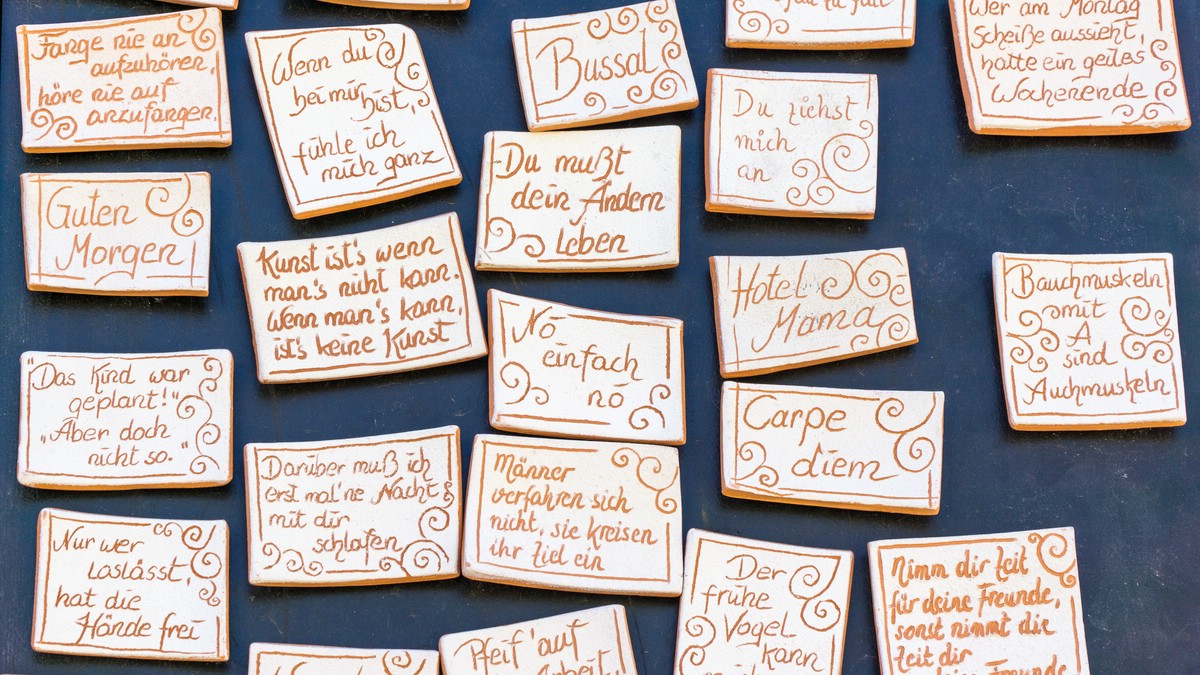 Fange nie an
aufzuhören,
höre nie auf
anzufangen.
Wenn du
bei mir bist,
fühle ich
mich ganz
Bussal
Du ziehst
mich
an
Wer am Montag
Scheiße aussieht,
hatte ein geiles
Wochenende
Guten
Morgen
Kunst ist's wenn
man's nicht kann.
Wenn man's kann,
ist's keine Kunst
Du mußt
dein Ändern
Leben
Hotel
Mama
Bauchmuskeln
omit
A
sind
Auchmuskeln
Nö
einfach
nö
"Das Kind war
geplant!"
"Aber doch
nicht so."
Darüber muß ich
erst mal 'ne Nacht
mit dir
schlafen
Männer
verfahren sich
nicht, sie kreisen
ihr Ziel ein
Carpe
diem
Nur wer
loslässt,
hat die
Hände frei
Der
frühe
Vogel
kann
Nimm dir Zeit
für deine Freunde,
sonst nimmt die
Zeit dir
deine Freunde
Pfeif' auf